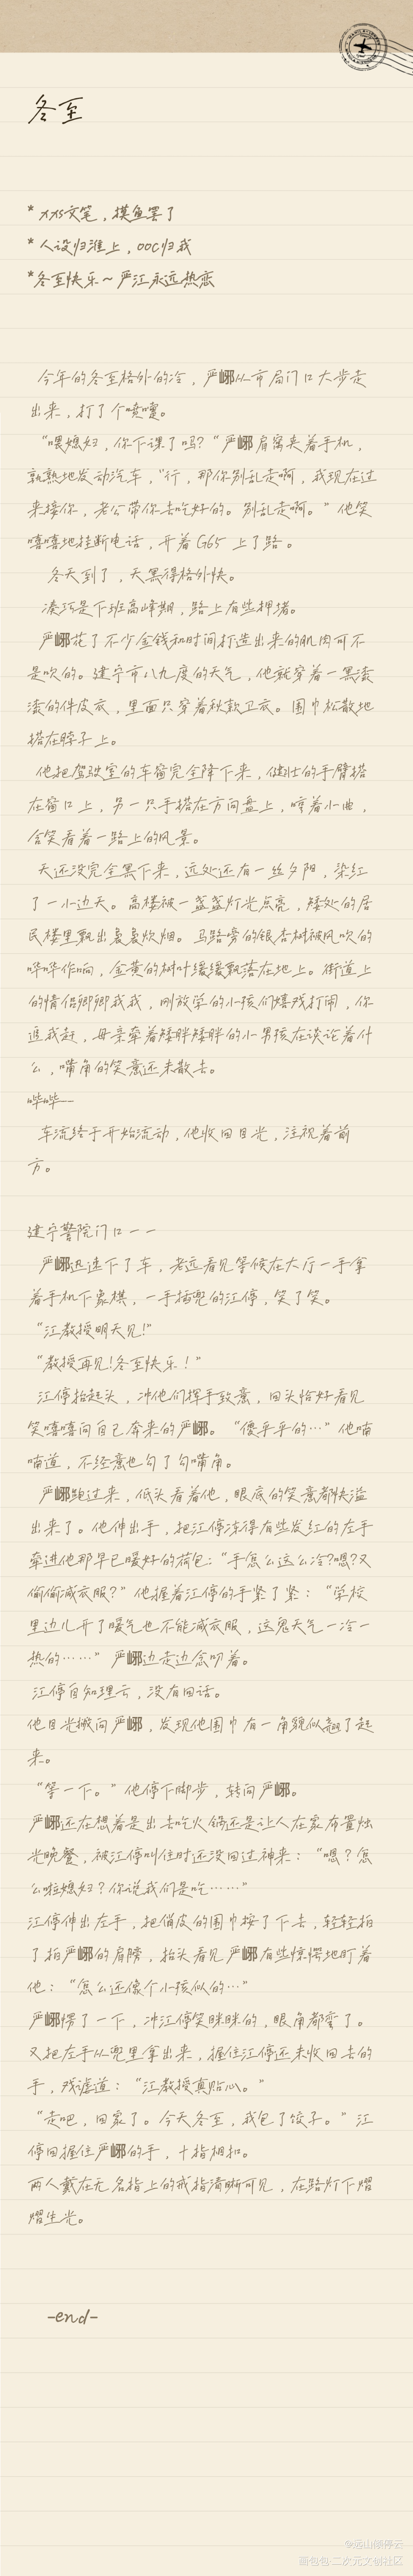 冬至
* 才疏文笔，摸鱼罢了
* 人设归淮上，ooc归我
*冬至快乐～严江永远热恋
今年的冬至格外的冷，严峫从市局门口大步走
出来，打了个喷嚏。
“喂媳妇，你下课了吗？“严峫肩窝夹着手机，
孰熟地发动汽车，“行，那你别乱走啊，我现在过
来接你，老公带你去吃好的。别乱走啊。”他笑
嘻嘻地挂断电话，开着G65 上了路。
冬天到了，天黑得格外快。
凑巧是下班高峰期，路上有些拥堵。
严峫花了不少金钱和时间打造出来的肌肉可不
是吹的。建宁市八九度的天气，他就穿着一黑漆
漆的件皮衣，里面只穿着秋款卫衣。围巾松散地
搭在脖子上。
他把驾驶室的车窗完全降下来，健壮的手臂搭
在窗口上，另一只手搭在方向盘上，哼着小曲，
含笑看着一路上的风景。
天还没完全黑下来，远处还有一丝夕阳，染红
了一小边天。高楼被一盏盏灯光点亮，矮处的居
民楼里飘出袅袅炊烟。马路旁的银杏树被风吹的
哗哗作响，金黄的树叶缓缓飘落在地上。街道上
的情侣卿卿我我，刚放学的小孩们嬉戏打闹，你
追我赶，母亲牵着矮胖矮胖的小男孩在谈论着什
么，嘴角的笑意还未散去。
哔哔——
车流终于开始流动，他收回目光，注视着前
方。
建宁警院门口－－
严峫迅速下了车，老远看见等候在大厅一手拿
着手机下象棋，一手插兜的江停，笑了笑。
“江教授明天见!”
“教授再见!冬至快乐！”
江停抬起头，冲他们挥手致意，回头恰好看见
笑嘻嘻向自己奔来的严峫。“傻乎乎的…”他喃
喃道，不经意也勾了勾嘴角。
严峫跑过来，低头看着他，眼底的笑意都快溢
出来了。他伸出手，把江停冻得有些发红的左手
牵进他那早已暖好的荷包：“手怎么这么冷?嗯?又
偷偷减衣服？”他握着江停的手紧了紧：“学校
里边儿开了暖气也不能减衣服，这鬼天气一冷一
热的……”严峫边走边念叨着。
江停自知理亏，没有回话。
他目光撇向严峫，发现他围巾有一角貌似翘了起
来。
“等一下。”他停下脚步，转向严峫。
严峫还在想着是出去吃火锅还是让人在家布置烛
光晚餐，被江停叫住时还没回过神来：“嗯？怎
么啦媳妇？你说我们是吃……”
江停伸出左手，把俏皮的围巾按了下去，轻轻拍
了拍严峫的肩膀，抬头看见严峫有些惊愕地盯着
他：“怎么还像个小孩似的…”
严峫愣了一下，冲江停笑眯眯的，眼角都弯了。
又把左手从兜里拿出来，握住江停还未收回去的
手，戏谑道：“江教授真贴心。”
“走吧，回家了。今天冬至，我包了饺子。”江
停回握住严峫的手，十指相扣。
两人戴在无名指上的戒指清晰可见，在路灯下熠
熠生光。
-end-
@远山倾停云
画包包·二次元文创社区